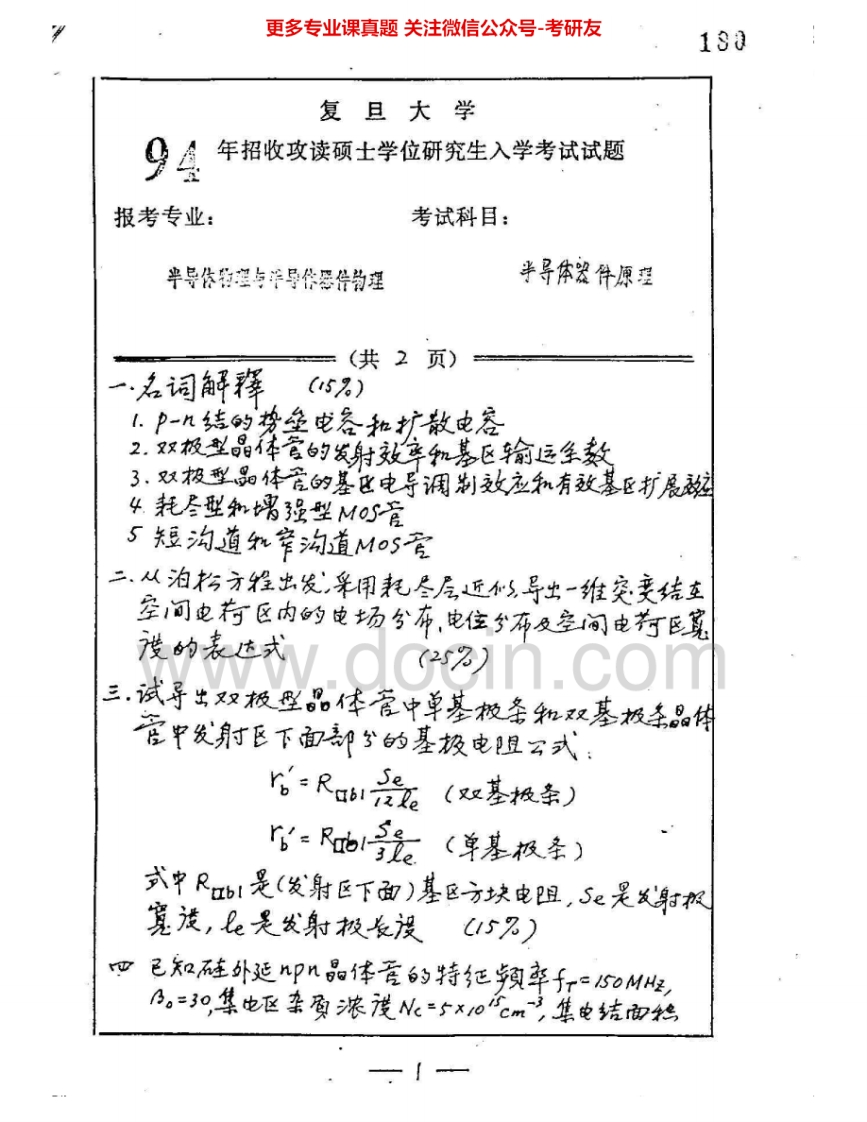 更多专业课真题 关注微信公众号-考研友
180
复旦大学
94 年招收攻读硕士学位研究生入学考试试题
报考专业: 考试科目:
半导体物理与半导体器件物理 半导体器件原理
(共 2 页)
一.名词解释 (15%)
1. p-n结的势垒电容和扩散电容
2. 双极型晶体管的发射效率和基区输运系数
3. 双极型晶体管的基区电导调制效应和有效基区扩展效应
4. 耗尽型和增强型MOS管
5 短沟道和窄沟道MOS管
二.从泊松方程出发,采用耗尽层近似,导出一维突变结在
空间电荷区内的电场分布,电位分布及空间电荷区宽
度的表达式 (25%)
www.docin.com
三.试导出双极型晶体管中单基极条和双基极条晶体
管中发射区下面部分的基极电阻公式:
rb' = R□b1 Se/12le (双基极条)
rb' = R□b1 Se/3le (单基极条)
式中R□b1是(发射区下面)基区方块电阻,Se是发射极
宽度,le是发射极长度 (15%)
四 已知硅外延npn晶体管的特征频率fT=150MHz,
β0=30,集电区杂质浓度Nc=5×10^15cm^-3,集电结面积
— 1 —